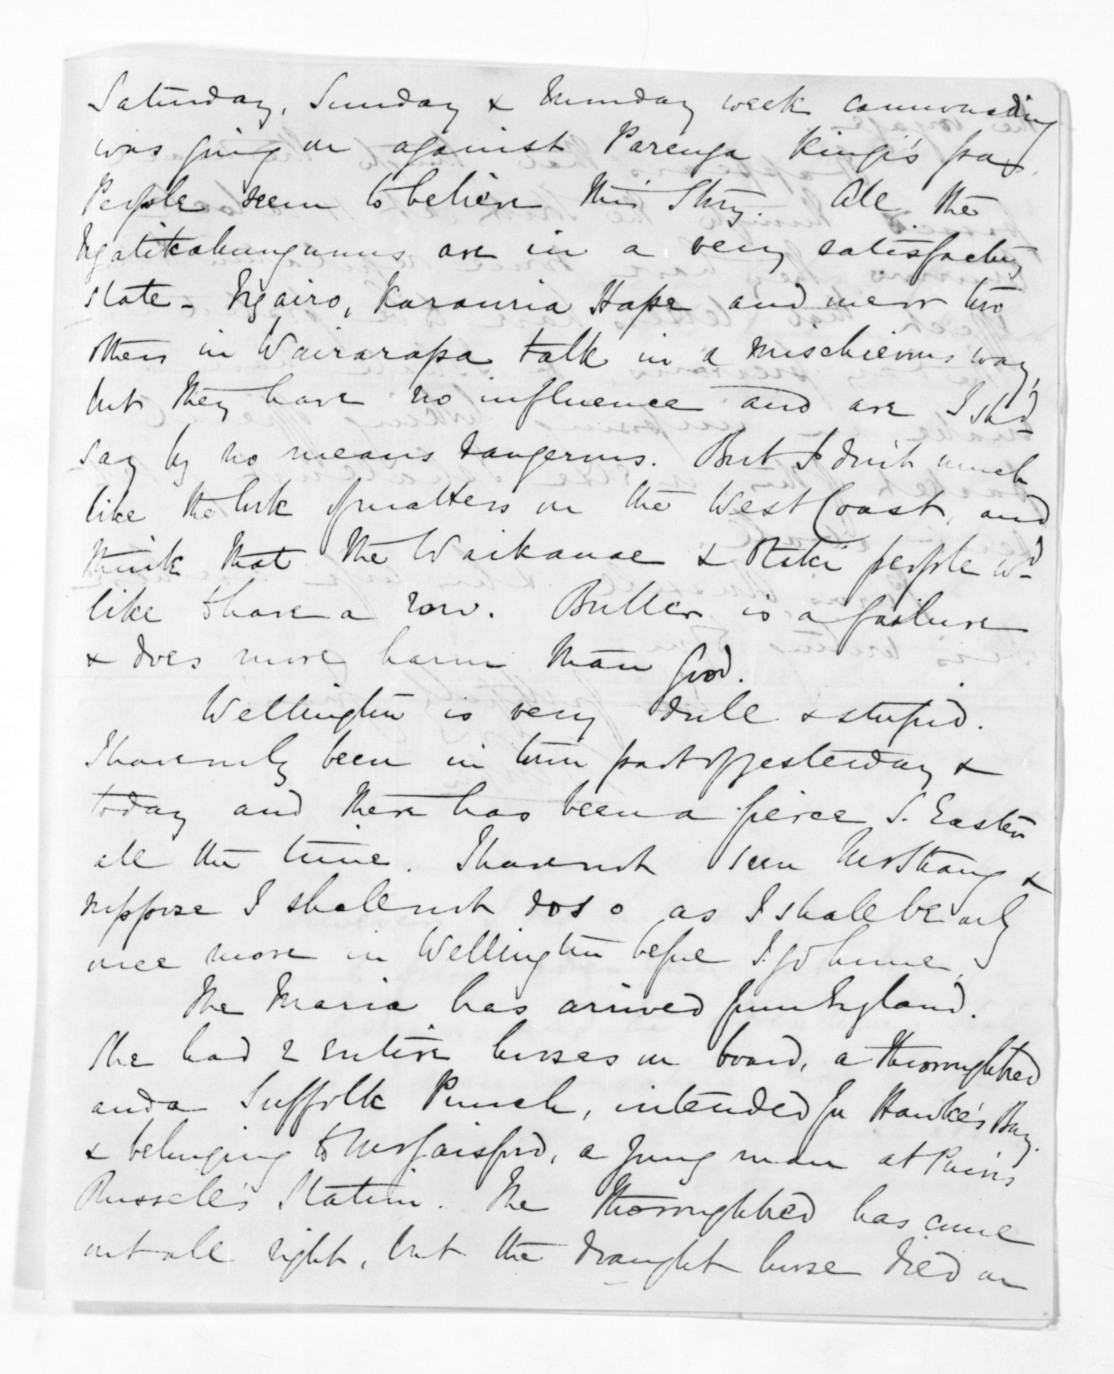 Saturday, Sunday & Monday week cannonading
was going on against Parenga Kingi's pa.
People seem to believe this story. All the
Ngatikahungunus are in a very satisfactory
state - Ngairo, Karauria Hape and one or two
others in Wairarapa talk in a mischievous way,
but they have no influence and are I shd
say by no means dangerous. But I don't much
like the look of matters on the West Coast, and
think that the Waikanae & Otaki people wd
like to have a row. Buller is a failure
& does more harm than good.
Wellington is very dull & stupid.
I have only been in town part of yesterday &
today and there has been a fierce S. Easter
all the time. I have not seen Mr Strang &
suppose I shall not do so as I shall be only
once more in Wellington before I go home.
The Maria has arrived from England.
She had 2 entire horses on board, a thoroughbred
and a Suffolk Punch, intended for Hawke's Bay.
& belonging to Mr Gaisford, a young man at Purvis
Russell's Station. The thoroughbred has come
out all right, but the draught horse died on